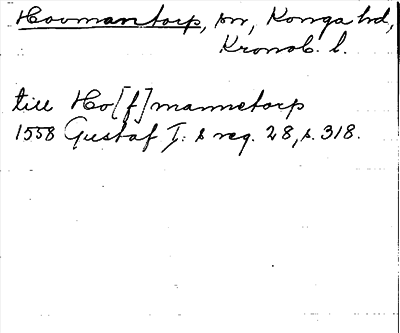 Hovmantorp, sn, Konga hd,
Kronob. l.
till Ho[f]mannetorp
1558 Gustaf I:s reg. 28, s. 318.